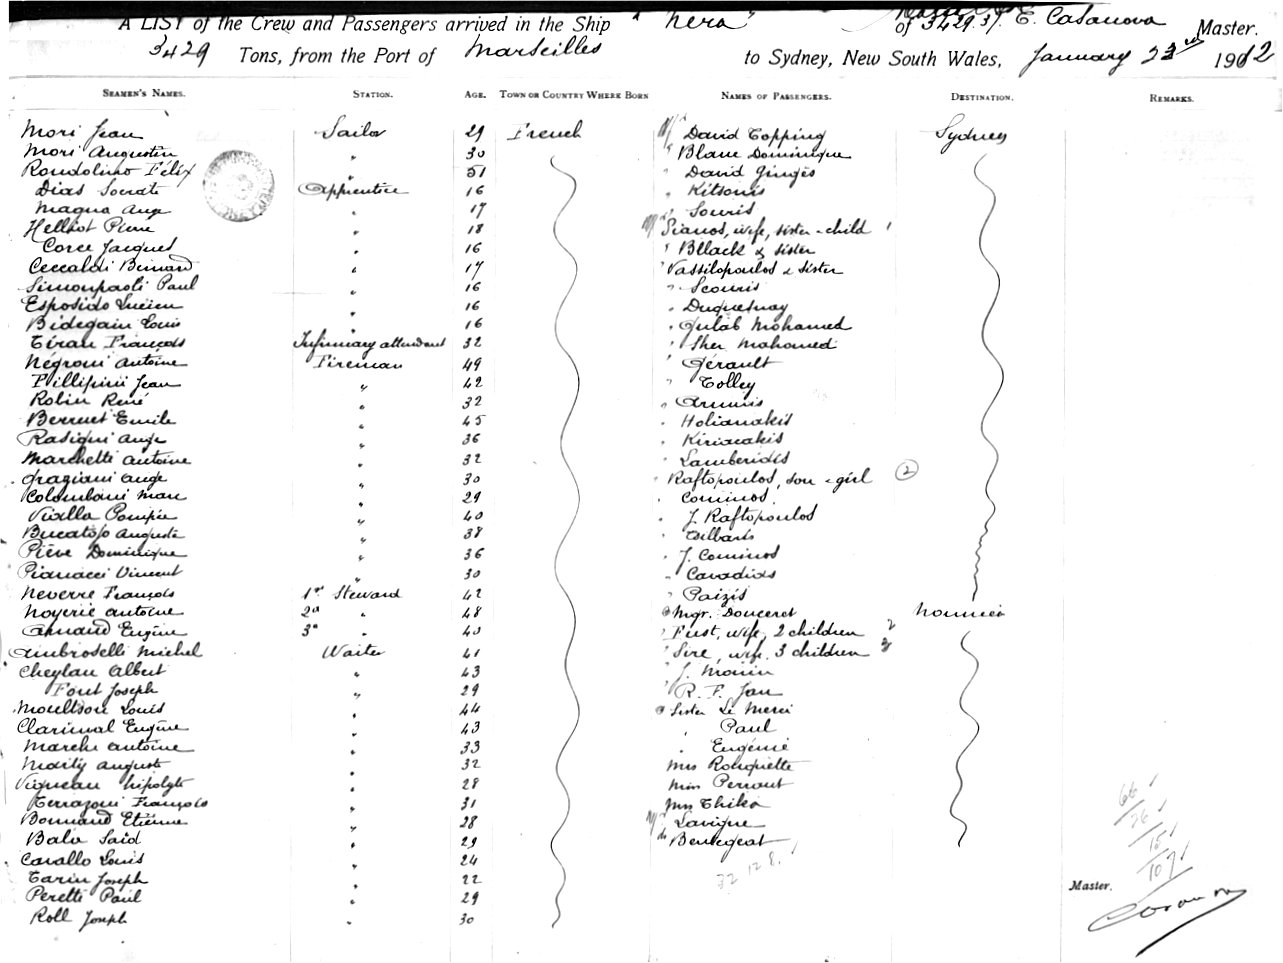 A LIST of the Crew and Passengers arrived in the Ship "Nera" of 3429.37 E. Casanova Master.
3429 Tons, from the Port of Marseilles to Sydney, New South Wales, January 23rd 1912
SEAMEN'S NAMES. STATION. AGE. TOWN OR COUNTRY WHERE BORN NAMES OF PASSENGERS. DESTINATION. REMARKS.
Mori Jean Sailor 29 French Mr David Topping Sydney
Mori Augustin " 30 " Blanc Dominique
Rondolino Félix " 51 " David Ginges
Dias Socrate Apprentice 16 " Kitsonis
Magna Ange " 17 " Souris
Helliot Pierre " 18 Sianos, wife, sister - child 1
Corce Jacques " 16 " Bllack & sister
Ceccaldi Bernard " 17 " Vassilopoulos & sister
Simonpaoli Paul " 16 " Scouris
Esposido Lucien " 16 " Duquesnay
Bidegain Louis " 16 " Gulab Mohamed
Tiran François Infirmary attendant 32 " Sher Mahomed
Négroni Antoine Fireman 49 " Gérault
Pillipini Jean " 42 " Tolley
Robin René " 32 "
Berruet Emile " 45 " Holianakis
Rasigni Ange " 36 " Kiriacakis
Marchetti Antoine " 32 " Lamberidis
Graziani Ange " 30 " Raftopoulos, son - girl 2
Colombani Marc " 29 " Cominos
Vixlla Pompée " 40 " J. Raftopoulos
Bucatojo Auguste " 38 "
Piève Dominique " 36 " J. Cominos
Pianacci Vincent " 30 " Cavadias
Neverre François 1st Steward 42 " Paizis
Noyerie Antoine 2d " 48 " Mgr. Douceret Nouméa
Arnaud Eugène 3d " 40 " Fust, wife, 2 children 2
Ambroselli Michel Waiter 41 " Sire, wife, 3 children 3
Cheylan Albert " 43 " J. Monin
Font Joseph " 29 " R. F. Jan
Moultson Louis " 44 " Sister Le Merci
Clarinval Eugène " 43 " Paul
Marchi Antoine " 33 " Eugénie
Marty Auguste " 32 Mrs Rouquette
Vigneau hipolyte " 28 Miss Perraut
Terrazoni François " 31 Mrs Thika
Bonnand Etienne " 28 Mr Lavigne
Bala Saïd " 29 do Benegeat
Cavallo Louis " 24
Tarin Joseph " 22
Peretti Paul " 29
Roll Joseph " 30
32 12 8.
66
26
15
107
Master.
Casanova